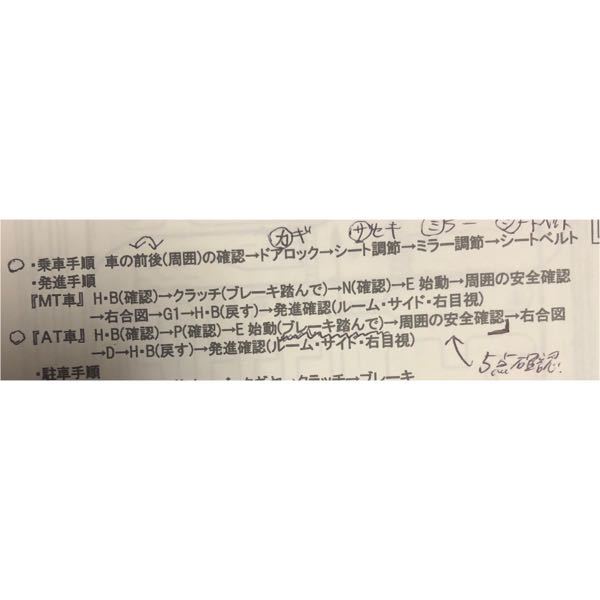 カギ ザセキ ミラー シートベルト
・乗車手順 車の前後(周囲)の確認→ドアロック→シート調節→ミラー調節→シートベルト
・発進手順
『MT車』 H・B(確認)→クラッチ(ブレーキ踏んで)→N(確認)→E 始動→周囲の安全確認
→右合図→G1→H・B(戻す)→発進確認(ルーム・サイド・右目視)
『AT車』 H・B(確認)→P(確認)→E 始動(ブレーキ踏んで)→周囲の安全確認→右合図
→D→H・B(戻す)→発進確認(ルーム・サイド・右目視)
5点確認.
・駐車手順
クラッチ→ブレーキ